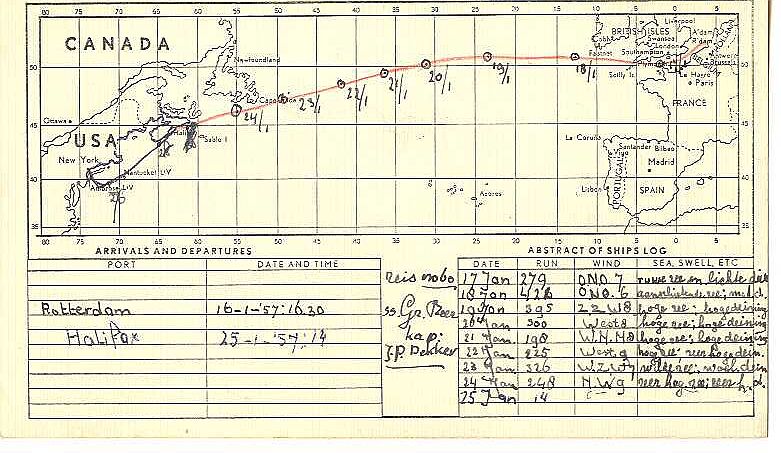 80 70 65 60 55 50 45 40 35 30 25 20 15 10 5 0 5
CANADA
BRITISH ISLES
Liverpool
Cobh
Swansea
A'dam
R'dam
HOLLAND
Fastnet
Southampton
London
Antwerp
Newfoundland
Plymouth
BELGIUM
Brussels
50
Scilly Is.
Le Havre
Paris
50
18/1
19/1
20/1
21/1
22/1
23/1
24/1
Cape Race
Ottawa
FRANCE
45
USA
Halifax
Sable I
La Coruña
45
Santander Bilbao
Vigo
New York
Nantucket LV
Madrid
40
Ambrose LV
PORTUGAL
Lisbon
SPAIN
Azores
40
26
35
35
80 75 70 65 60 55 50 45 40 35 30 25 20 15 10 5 0 5
ARRIVALS AND DEPARTURES
ABSTRACT OF SHIPS LOG
PORT DATE AND TIME
DATE RUN WIND SEA, SWELL, ETC
Reis
17 Jan 279 ONO 7
18 Jan 428 ONO. 6
Rotterdam 16-1-'57: 16.30
ss. Gr. Beer
19 Jan 395 hoge zee; hoge deining
20 Jan 300 West 8 hoge zee; hoge deining
Halifax 25-1-'57: 14
kap:
21 Jan. 198 hoge zee; hoge deining
J.P. Dekker
22 Jan 225 West. 9 hoge zee zeer hoge dein.
23 Jan. 326 W.Z.W 7 wilde zee;
24 Jan 248 N.W 9 zeer hog. zee; zeer h. d.
25 Jan 14